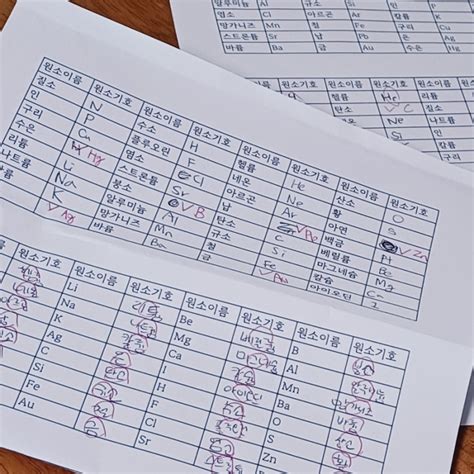 알루미늄 Al 규소 인 P
염소 Cl 아르곤 Ar 칼륨 K
망가니즈 Mn 철 Fe 구리 Cu
스트론튬 Sr 납 Pb 은 Ag
바륨 Ba 금 Au 수은 Hg
원소이름 원소기호 원소이름
헬륨 He 리튬
C 질소
Ne 나트륨
Si 인
원소이름 원소기호 원소이름 원소기호 원소이름 원소기호 원소이름 원소기호
질소 N 수소 H 헬륨 He 산소 O
인 P 플루오린 F 네온 Ne 황 S
구리 Cu 염소 Cl 아르곤 Ar 아연 Zn
수은 Hg 스트론튬 Sr 납 Pb 백금 Pt
리튬 Li 붕소 B 탄소 C 베릴륨 Be
나트륨 Na 알루미늄 Al 규소 Si 마그네슘 Mg
K 망가니즈 Mn 철 Fe 칼슘 Ca
Ag 바륨 Ba 금 Au 아이오딘 I
원소기호 원소이름 원소기호 원소이름 원소기호 원소이름
Li 리튬 Be 베릴륨 B 붕소
Na 나트륨 Mg 마그네슘 Al
K 칼륨 Ca 칼슘 Mn 망가니즈
Ag 은 I Ba 바륨
C 탄소 H 수소 O 산소
Si 규소 F S 황
Fe 철 Cl 염소 Zn
Au 금 Sr 스트론튬